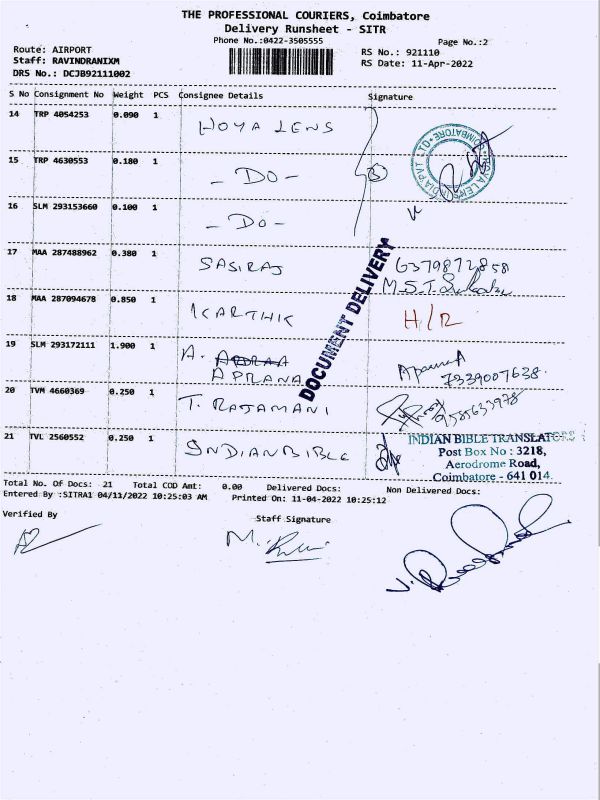 THE PROFESSIONAL COURIERS, Coimbatore
Delivery Runsheet - SITR
Phone No.:0422-3505555
Page No.:2
Route: AIRPORT
RS No.: 921110
Staff: RAVINDRANIXM
RS Date: 11-Apr-2022
DRS No.: DCJB92111002
S No Consignment No Weight PCS Consignee Details Signature
14 TRP 4054253 0.090 1 HOYA LENS
15 TRP 4630553 0.180 1 - DO -
16 SLM 293153660 0.100 1 - DO -
17 MAA 287488962 0.380 1 SASIRAJ 6379872858
M.S.T.
18 MAA 287094678 0.850 1 KARTHIK H/R
19 SLM 293172111 1.900 1 A.
APRANA 7339007638
20 TVM 4660369 0.250 1 T. RAJAMANI 9585633978
21 TVL 2560552 0.250 1 INDIAN BIBLE
INDIAN BIBLE TRANSLATORS
Post Box No : 3218,
Aerodrome Road,
Coimbatore - 641 014.
DOCUMENT DELIVERY
Total No. Of Docs: 21 Total COD Amt: 0.00 Delivered Docs: Non Delivered Docs:
Entered By :SITRA1 04/11/2022 10:25:03 AM Printed On: 11-04-2022 10:25:12
Verified By
Staff Signature